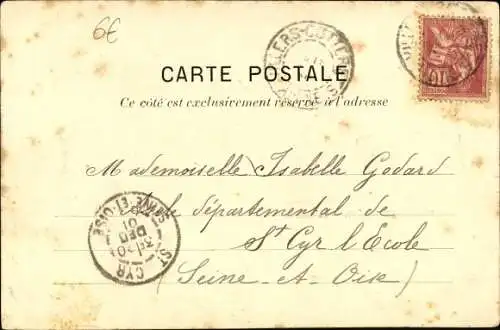 6€
CARTE POSTALE
Ce côté est exclusivement réservé à l'adresse
Mademoiselle Isabelle Godard
départemental de
St Cyr l'Ecole
(Seine-et-Oise)
ST CYR
SEINE-ET-OISE
DEC
01
10